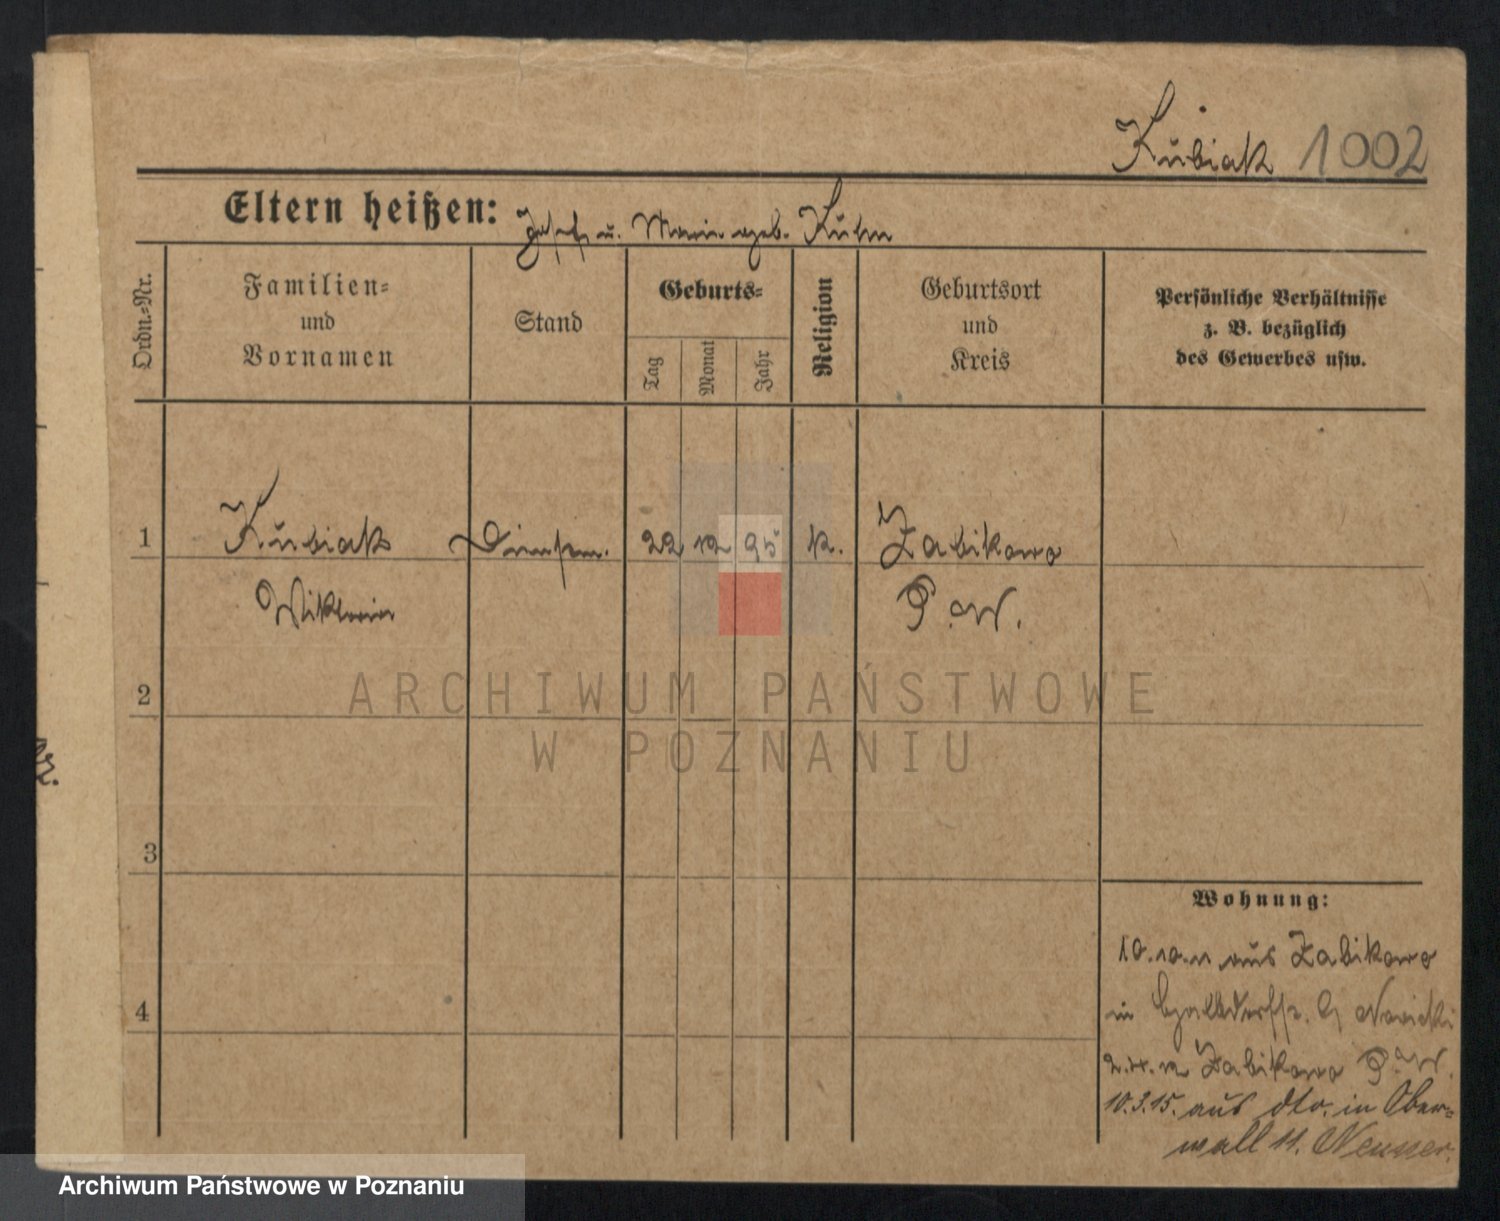 Kubiak 1002
Eltern heißen: Josef u. Marie geb. Kuhn
Ordn.-Nr.
Familien-
und
Vornamen
Stand
Geburts-
Tag
Monat
Jahr
Religion
Geburtsort
und
Kreis
Persönliche Verhältnisse
z. B. bezüglich
des Gewerbes usw.
1 Kubiak 22 12 95 k. Zabikowo
Wiktoria P.W.
2
3
4
Wohnung:
10.10.11 aus Zabikowo
in
Zabikowo P.W.
10.3.15. aus dto. in Ober-
wall 11.
ARCHIWUM PAŃSTWOWE
W POZNANIU
Archiwum Państwowe w Poznaniu